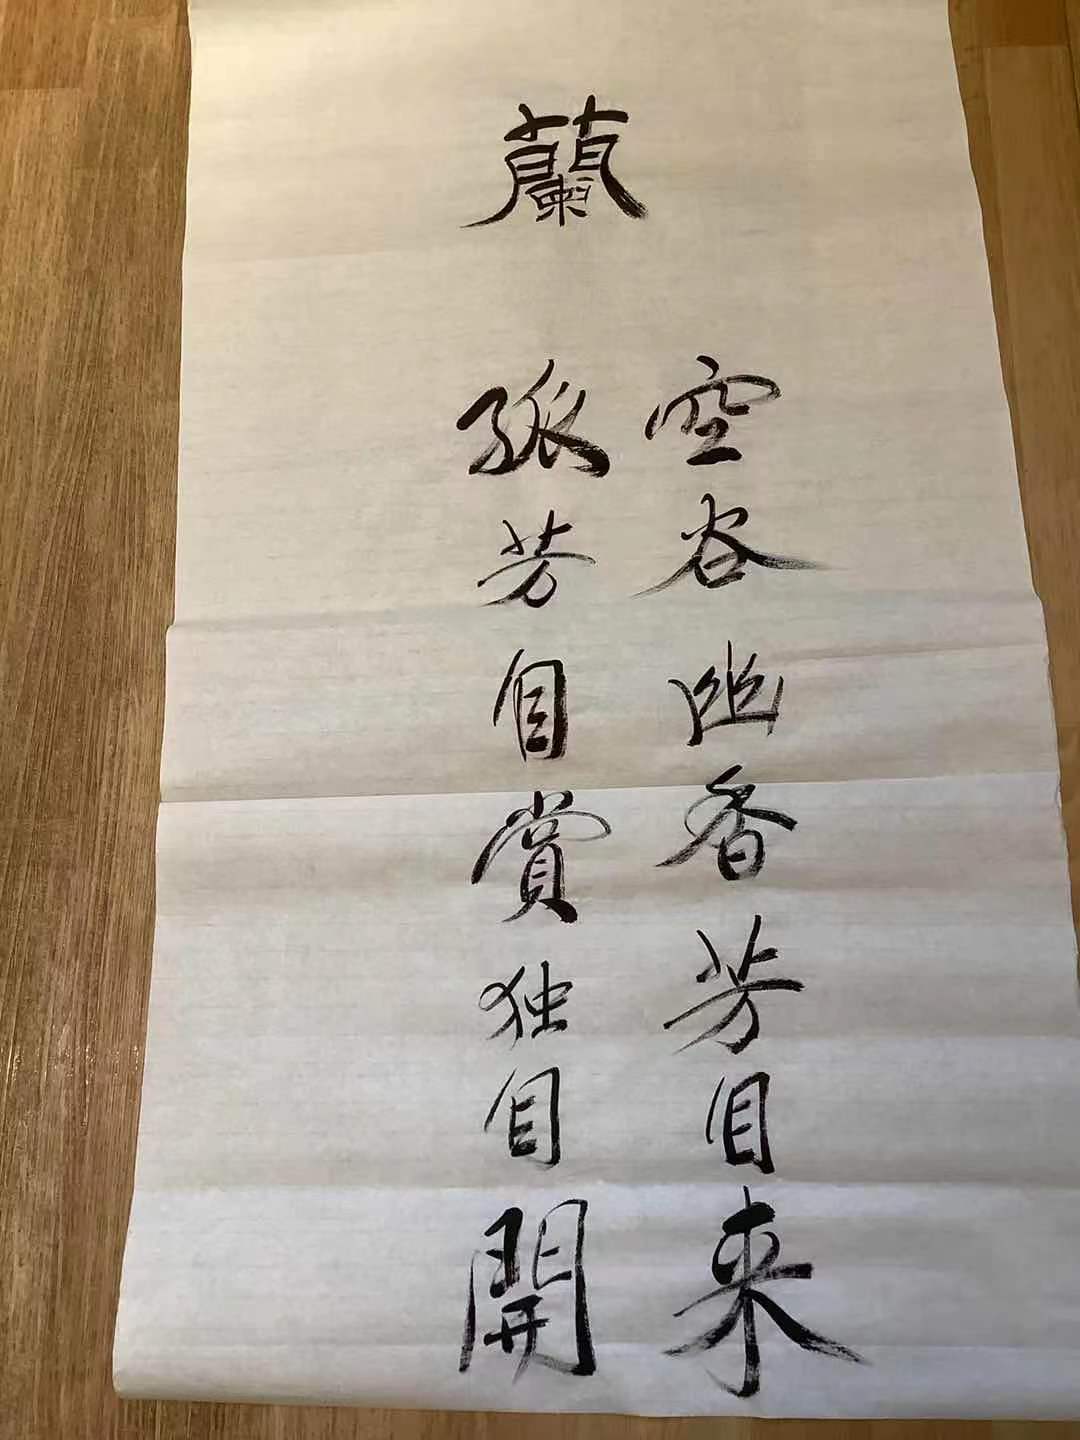 蘭
空谷幽香芳自来
孤芳自賞独自開